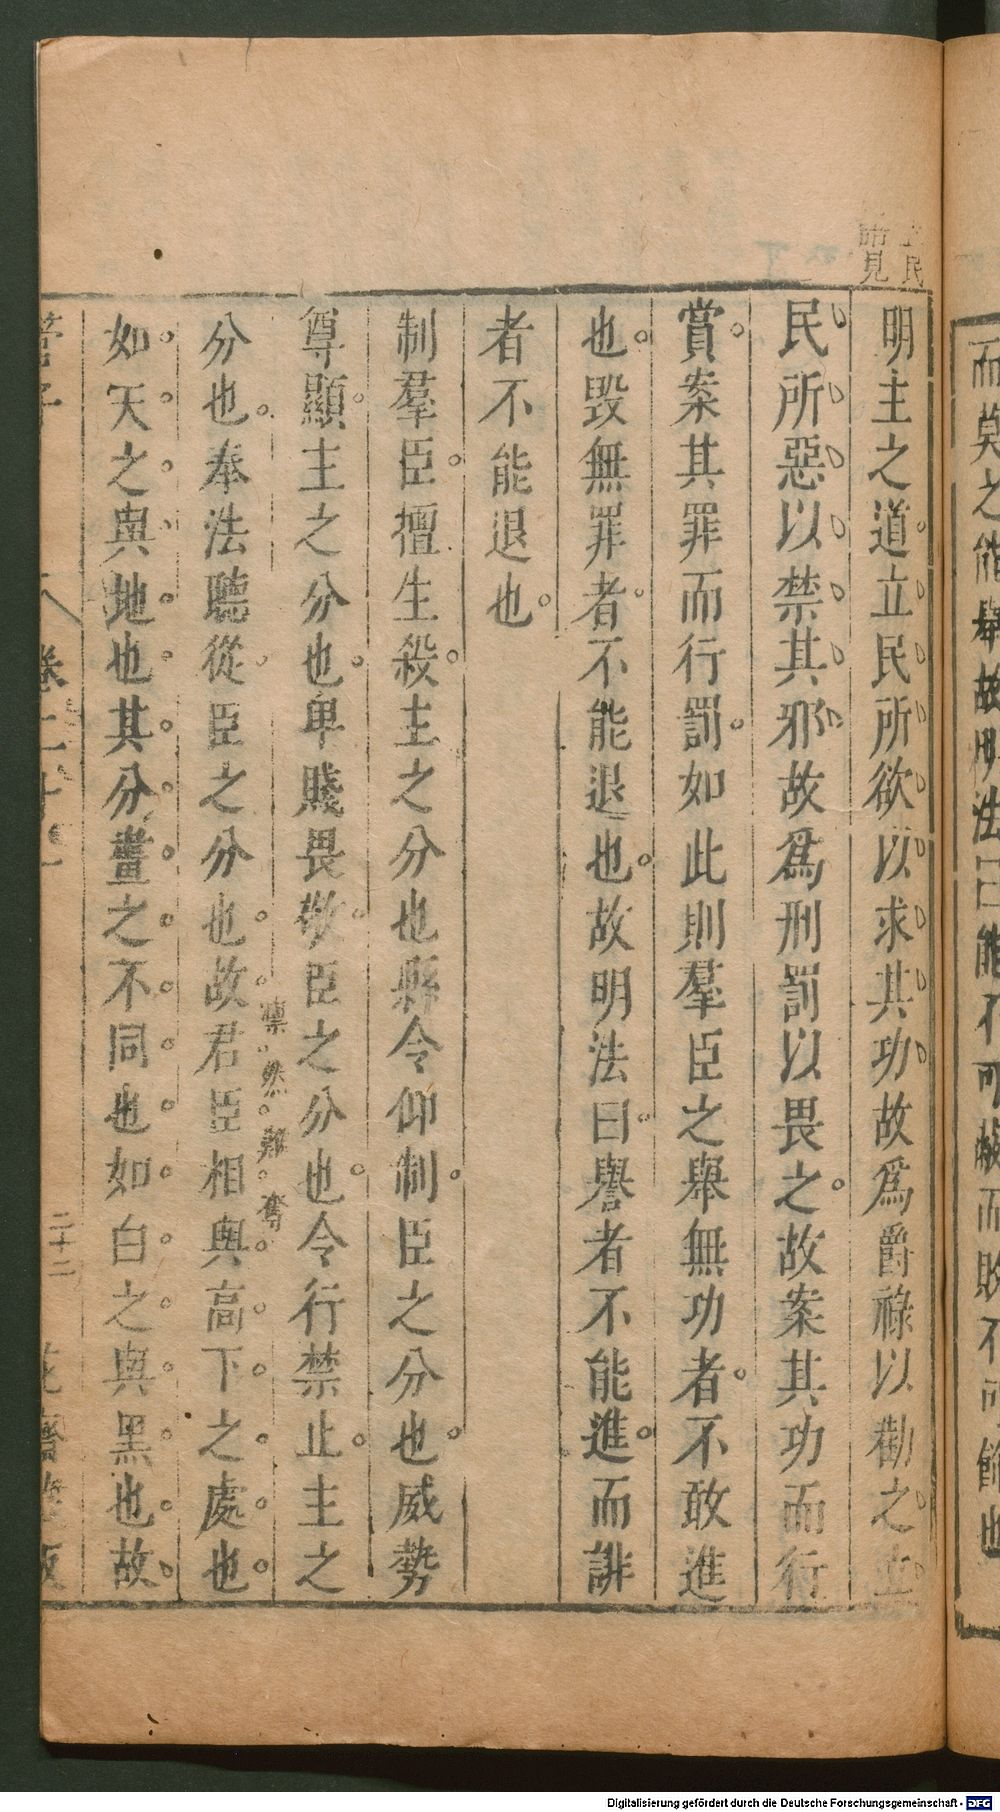 而莫之能舉故明法曰能不可蔽而敗不可飾也
民
見
明主之道立民所欲以求其功故爲爵祿以勸之立
民所惡以禁其邪故爲刑罰以畏之故案其功而行
賞案其罪而行罰如此則羣臣之舉無功者不敢進
也毀無罪者不能退也故明法曰譽者不能進而誹
者不能退也
制羣臣擅生殺主之分也縣令仰制臣之分也威勢
尊顯主之分也卑賤畏敬臣之分也令行禁止主之
凛然難奪
分也奉法聽從臣之分也故君臣相與高下之處也
如天之與地也其分畫之不同也如白之與黑也故
管子 卷二十一 二十二 花齋藏板
Digitalisierung gefördert durch die Deutsche Forschungsgemeinschaft - DFG